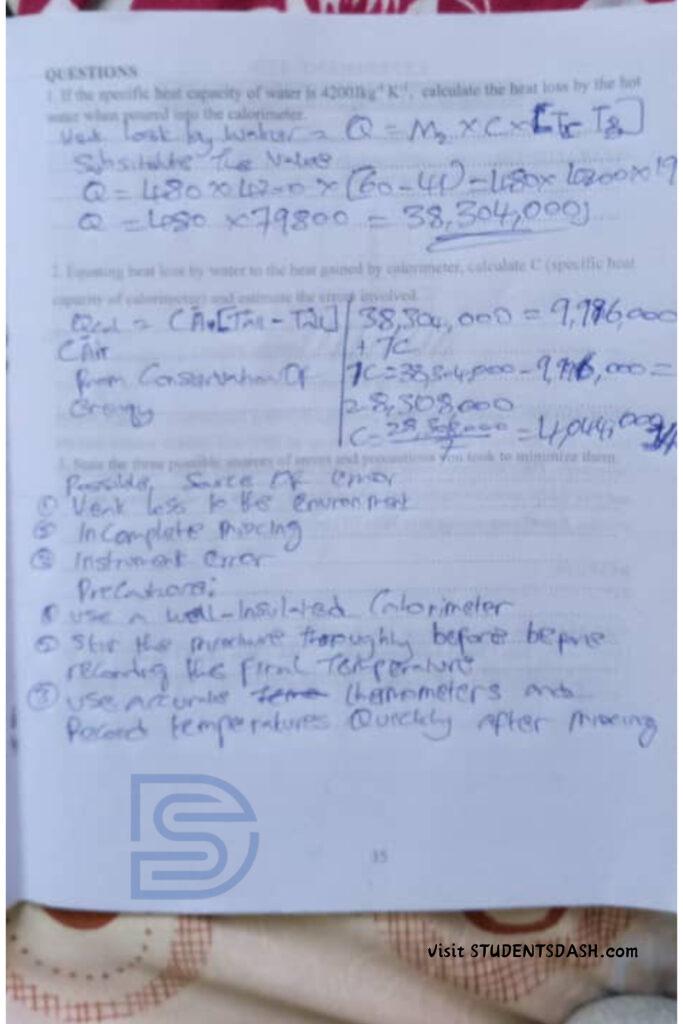 QUESTIONS
1. If the specific heat capacity of water is 4200Jkg⁻¹ K⁻¹, calculate the heat loss by the hot
water when poured into the calorimeter.
lost by water = Q = M₂ × C ×
Substitute The Value
Q = 480 × 4200 × (60 - 41) = 480 × 4200 × 19
Q = 480 × 79800 = 38,304,000J
2. Equating heat loss by water to the heat gained by calorimeter, calculate C (specific heat
capacity of calorimeter) and estimate the errors involved.
38,304,000 = 9,796,000
+ 7C
From Conservation Of
Energy
28,508,000
3. State the three possible sources of errors and precautions you took to minimize them.
Possible Source Of error
① loss to the environment
② Incomplete mixing
③ Instrument error
Precautions:
① use a well-Insulated Calorimeter
② Stir the thoroughly before
recording the Final Temperature
③ use accurate thermometers and
Record temperatures Quickly After mixing
35
DS
Visit STUDENTSDASH.com